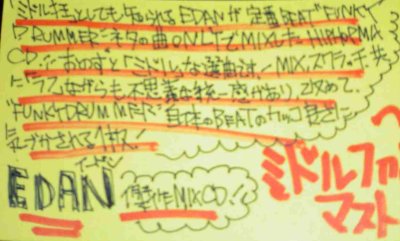 ミドル王としても知られるEDANが定番BEAT"FUNKY
DRUMMER"ネタの曲ONLYでMIXしたHIPHOP MIX
CD!! おのずと"ミドル"な選曲に!! MIX,スクラッチ,共
ながらも不思議な統一感があり,改めて,
"FUNKY DRUMMER"自体のBEATのカッコ良さに
気づかされる1枚!
イーダン
EDAN 傑作MIXCD!!
ミドルファン
マスト